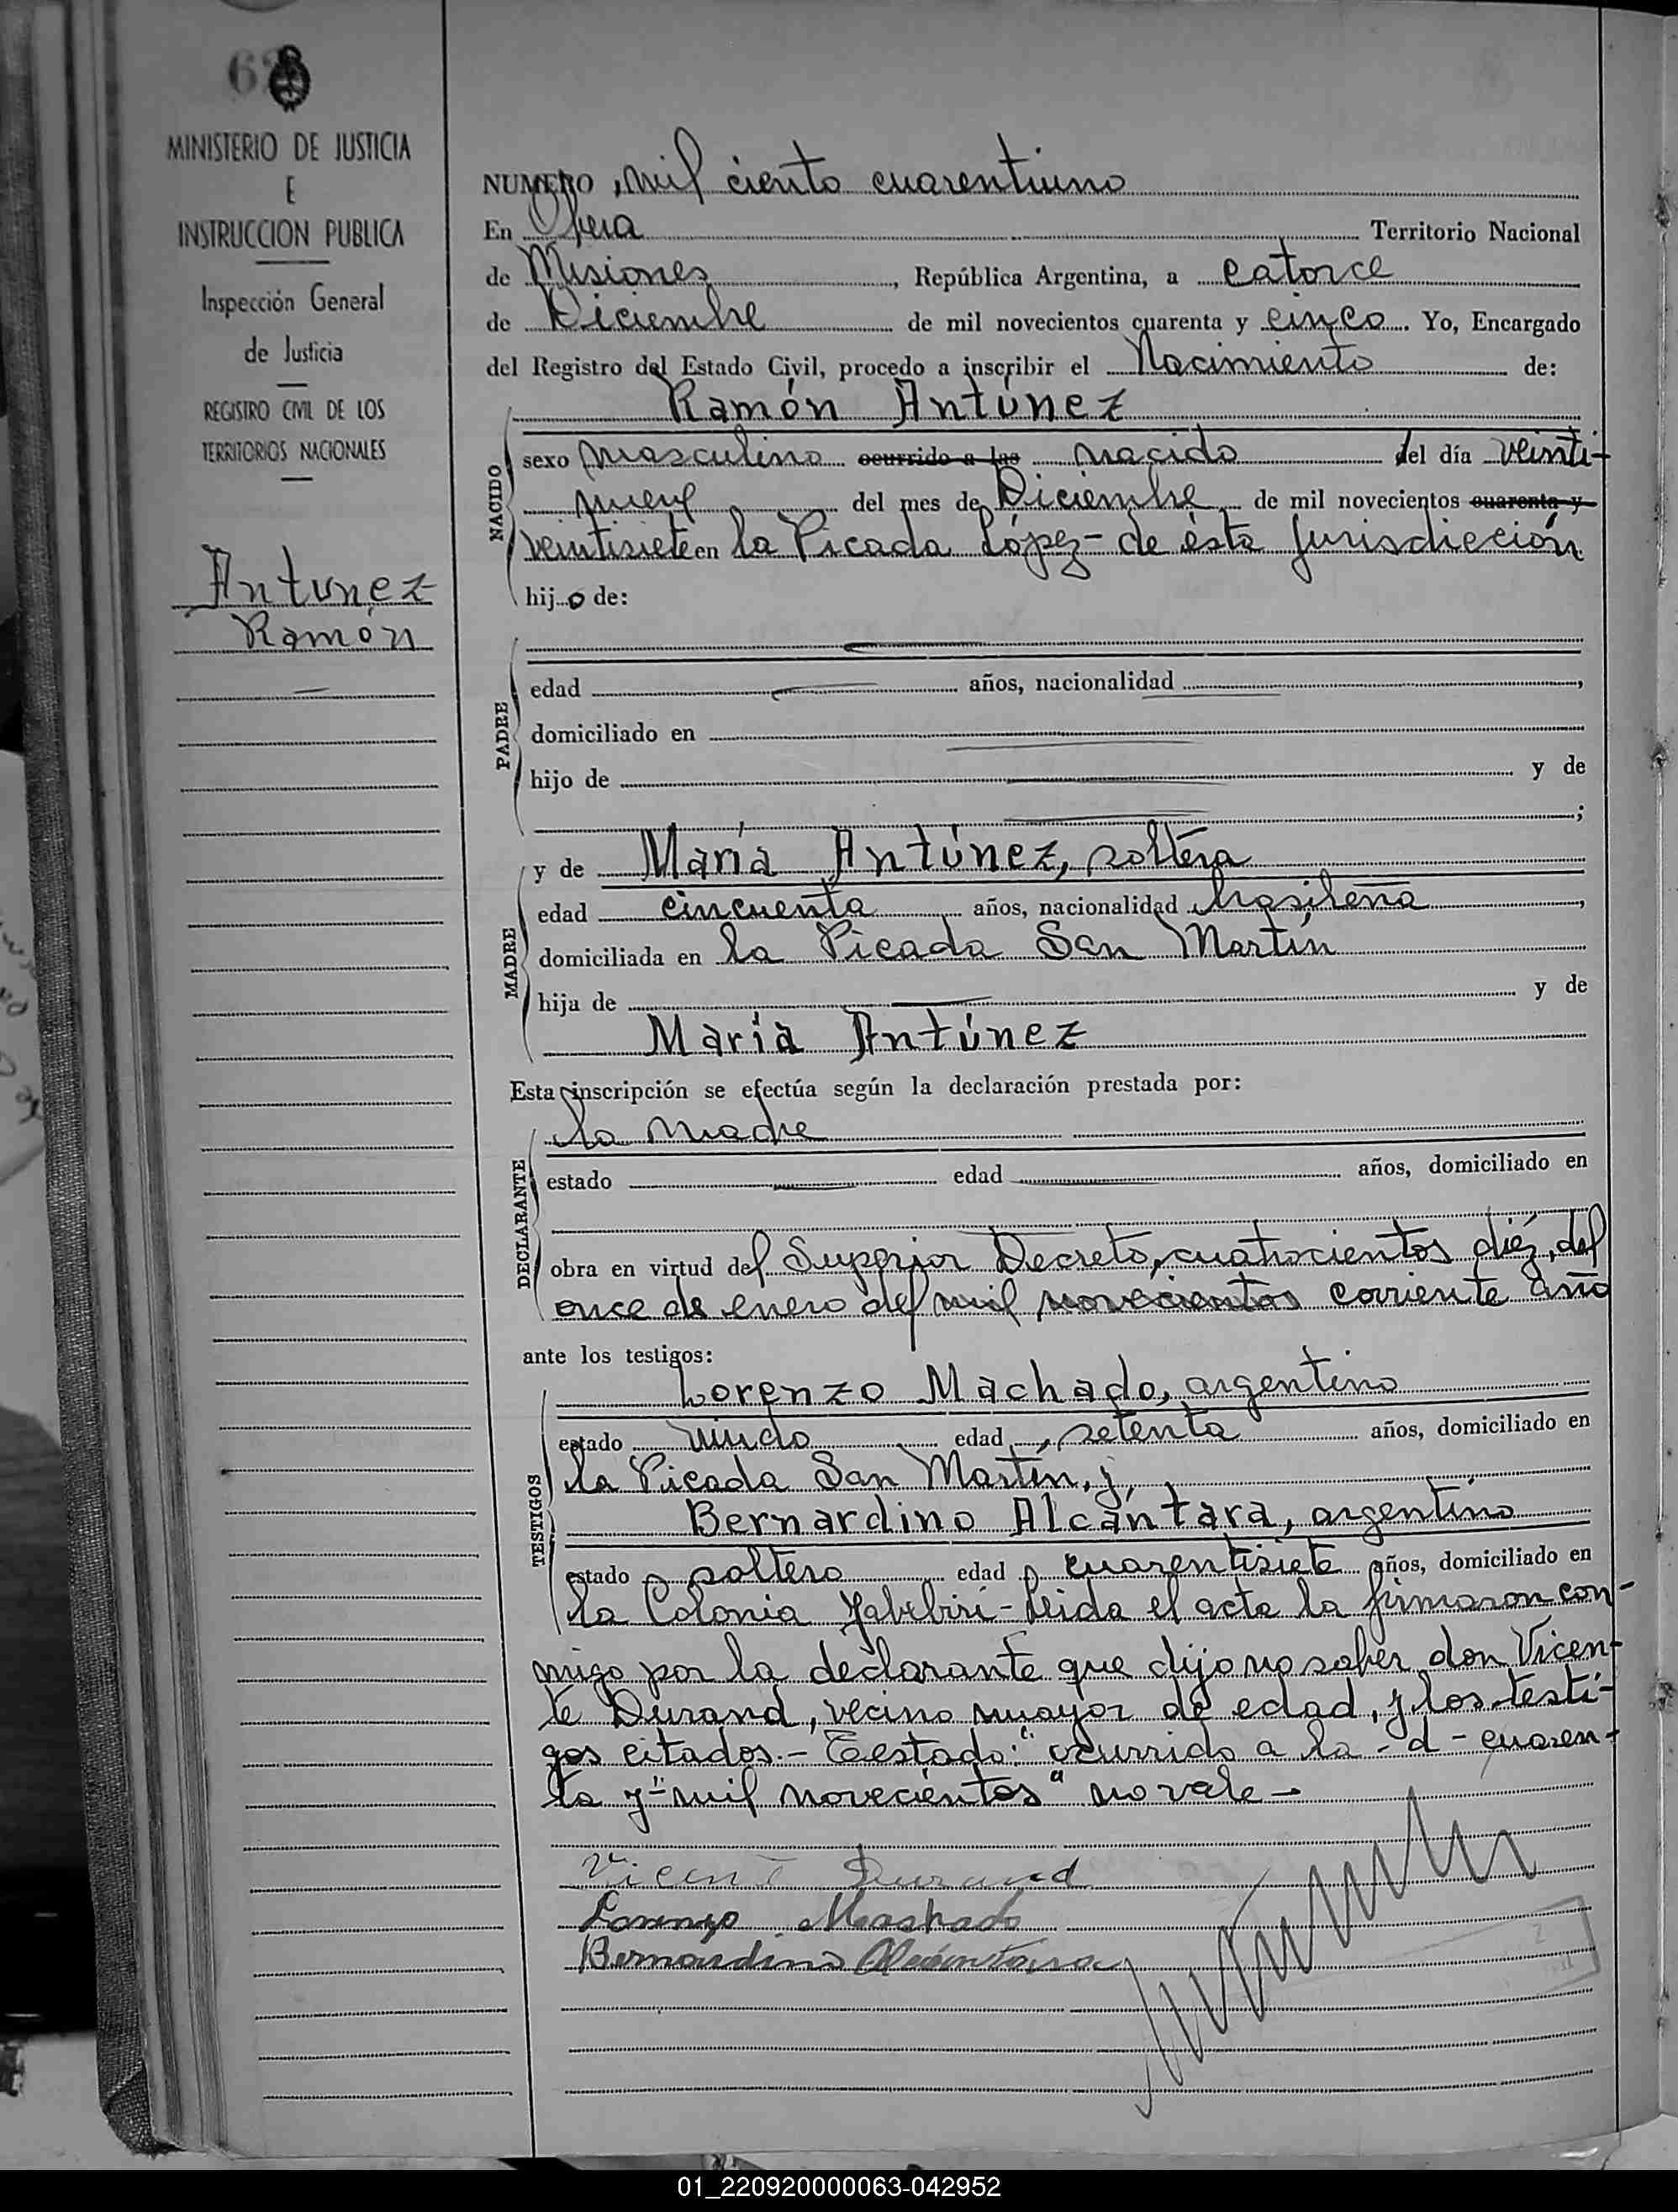 MINISTERIO DE JUSTICIA
E
INSTRUCCION PUBLICA
Inspección General
de Justicia
REGISTRO CIVIL DE LOS
TERRITORIOS NACIONALES
Antunez
Ramón
NUMERO, mil ciento cuarentiuno
En Obera Territorio Nacional
de Misiones, República Argentina, a catorce
de Diciembre de mil novecientos cuarenta y cinco. Yo, Encargado
del Registro del Estado Civil, procedo a inscribir el Nacimiento de:
Ramón Antúnez
NACIDO
sexo masculino ocurrido a las nacido del día veinti-
nueve del mes de Diciembre de mil novecientos cuarenta y
veintisiete en la Picada López- de ésta jurisdicción
hijo de:
PADRE
edad años, nacionalidad ,
domiciliado en
hijo de y de
;
MADRE
y de María Antúnez, soltera
edad cincuenta años, nacionalidad brasileña,
domiciliada en la Picada San Martín
hija de y de
María Antúnez
Esta inscripción se efectúa según la declaración prestada por:
DECLARANTE
la madre
estado edad años, domiciliado en
obra en virtud del Superior Decreto, cuatrocientos diéz, del
once de enero del mil novecientos corriente año
ante los testigos:
TESTIGOS
Lorenzo Machado, argentino
estado viudo edad, setenta años, domiciliado en
la Picada San Martín, y,
Bernardino Alcántara, argentino
estado soltero edad cuarentisiete años, domiciliado en
la Colonia Yabebirí- Leida el acta la firmaron con-
migo por la declarante que dijo no saber don Vicen-
te Durand, vecino mayor de edad, y los testi-
gos citados.- Testado: "ocurrido a la -d- cuaren-
ta y" "mil novecientos" no vale-
Vicente Durand
Lorenzo Mashado
Bernardino Alcántara
01_220920000063-042952